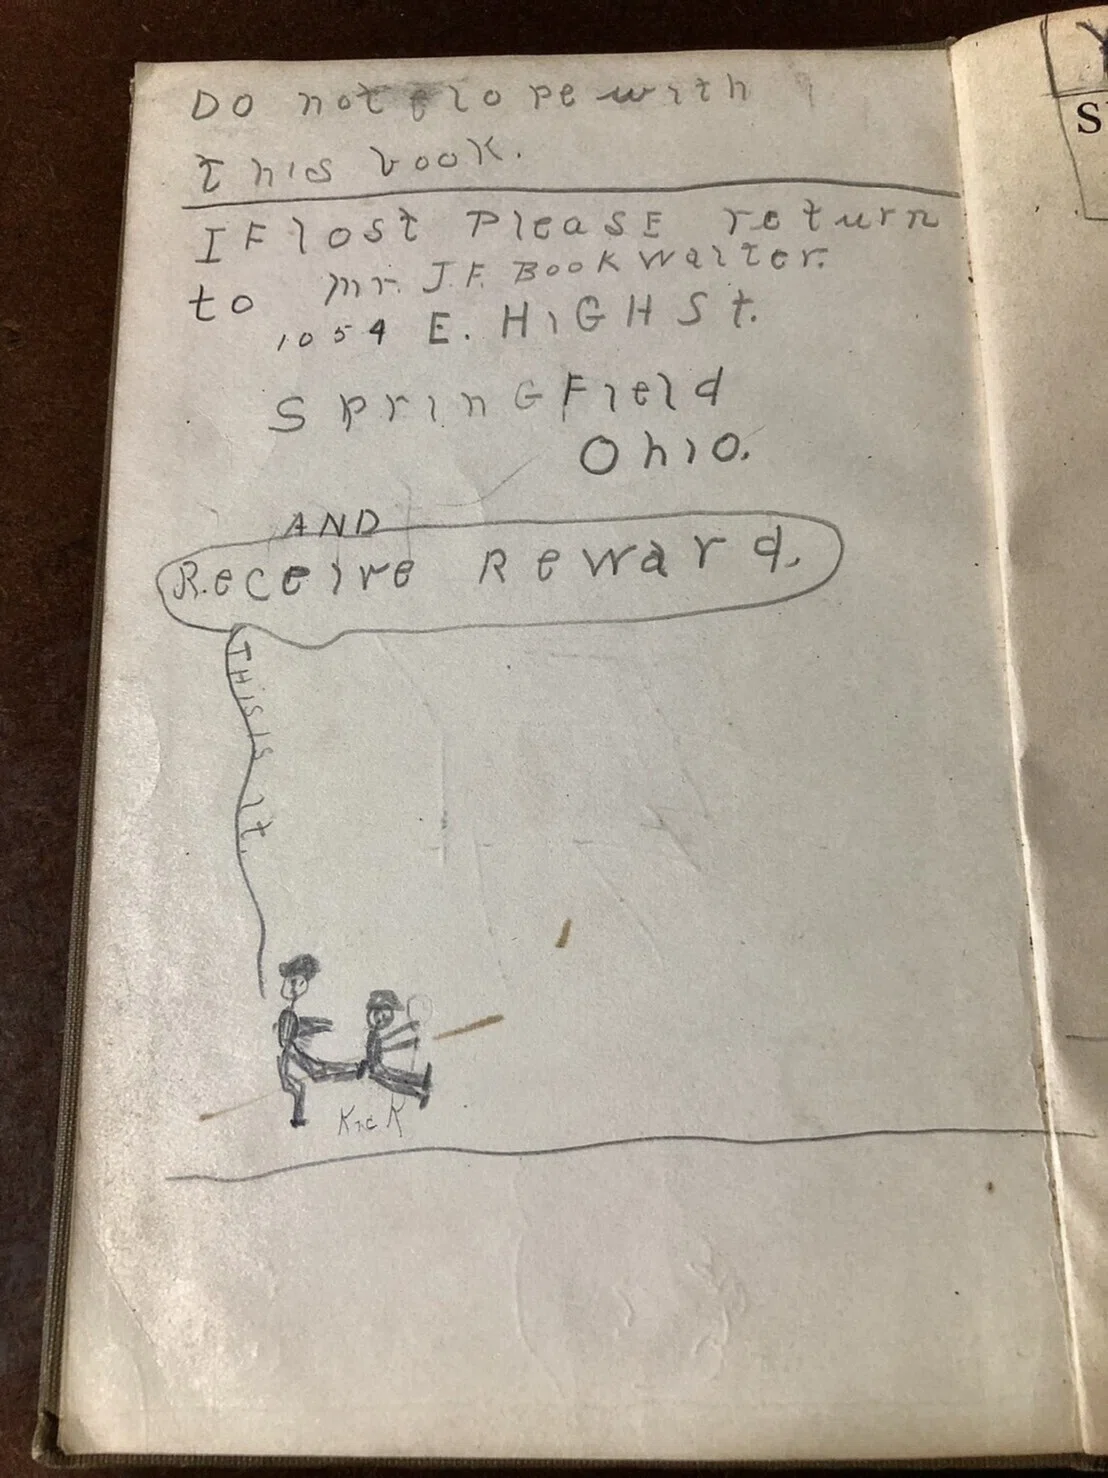 Do not elope with
this book.
IF lost PleasE return
to mr. J.F. BookWalter.
1054 E. HiGH St.
SprinGField
Ohio.
AND
Receive Reward.
THIS IS It.